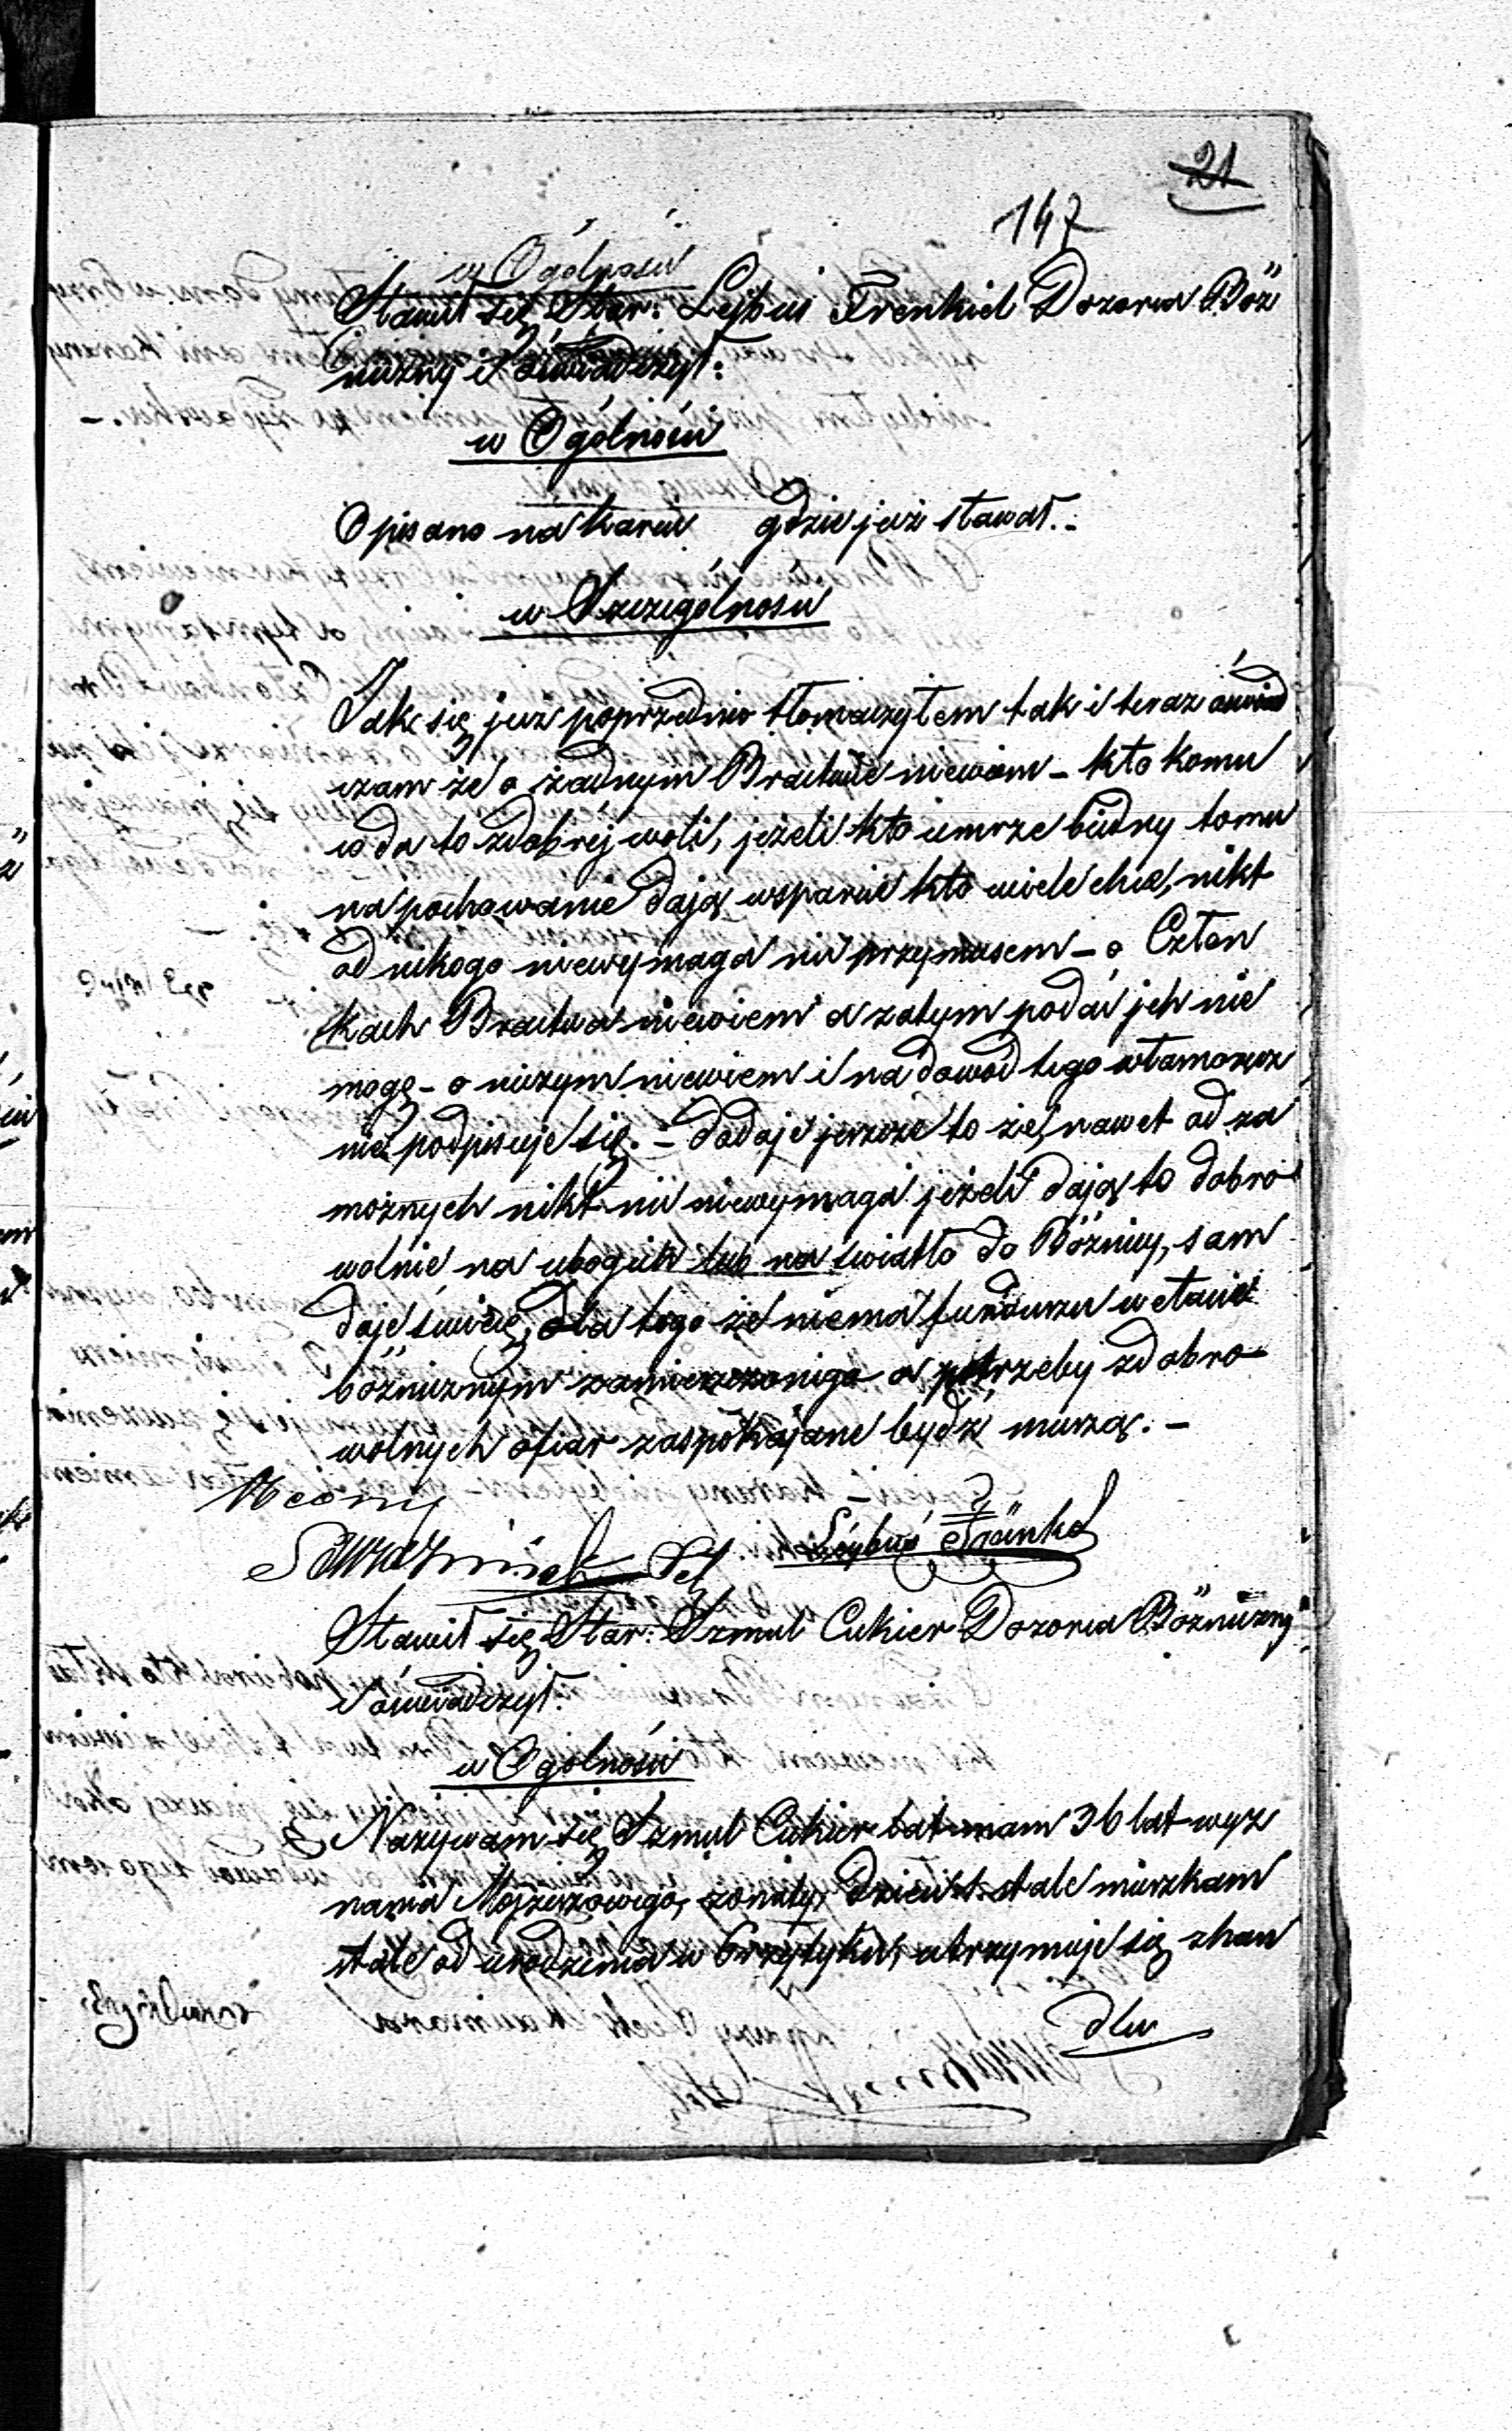 21
147
w Ogólności
Stawił się Star: Lejbuś Frenkiel Dozorca Boż
niczny i oświadczył:
w Ogólności
Opisano na karcie gdzie już stawał.-
w Szczególności
Jak się już poprzednio tłomaczyłem tak i teraz oświad
czam że o żadnym Bractwie niewiem - kto komu
co da to zdobrej woli, jeżeli kto umrze biedny temu
na pochowanie dają wsparcie kto wiele chce, nikt
od nikogo niewymaga nic przymusem - o Człon
kach Bractwa niewiem a zatym podać jch nie
mogę - o niczym niewiem i na dowód tego własnorącz
nie podpisuje się. - dodaje jeszcze to że, nawet od za
możnych nikt nic niewymaga jeżeli dają to dobro
wolnie na ubogich lub na światło do Bożnicy, sam
daje świece, dla tego że niema funduszu w etacie
bożnicznym zamieszczonego a potrzeby zdobro
wolnych ofiar zaspokajane bydź muszą. -
Leybuś Fränkel
Stawił się Star: Szmul Cukier Dozorca Bożniczny
i oświadczył.
w Ogólności
Nazywam się Szmul Cukier lat mam 36 lat wyz
nania Mojżeszowego, żonaty, Dzieci 1. stale mieszkam
stale od urodzenia w Przytyku, utrzymuje się zhan
dlu